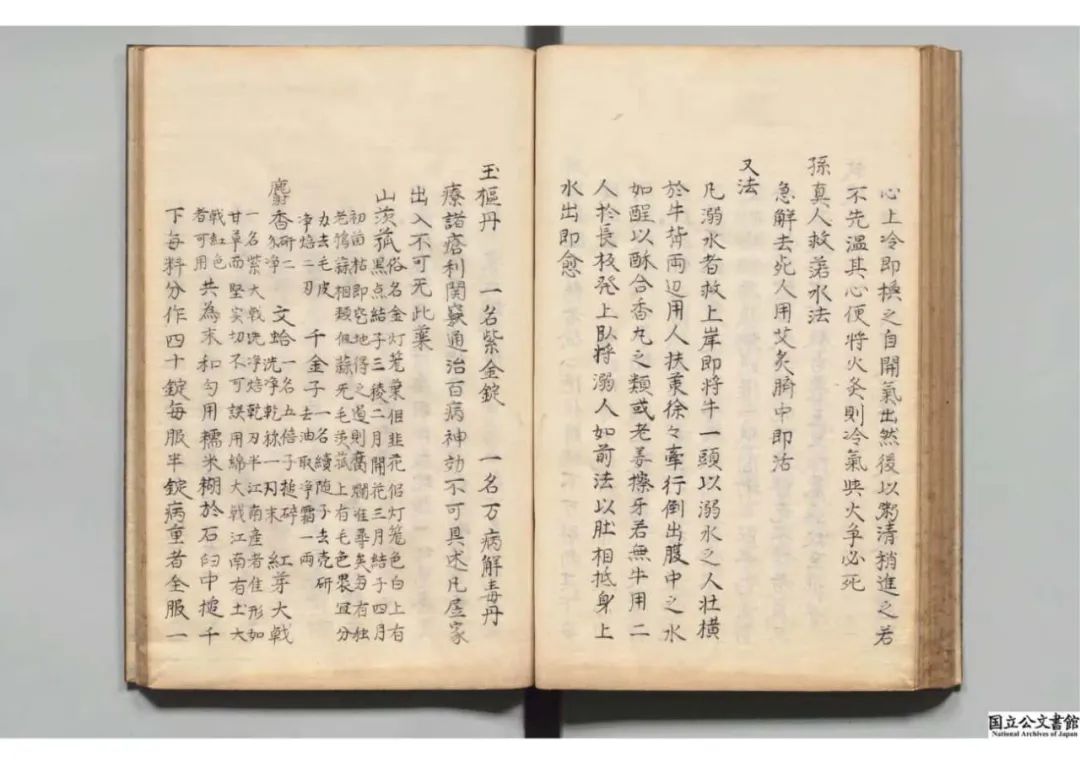 心上冷即換之自開氣出然後以粥清稍進之若
不先溫其心便將火炙則冷氣與火爭必死
孫真人救溺水法
急解去死人用艾灸臍中即活
又法
凡溺水者救上岸即將牛一頭以溺水之人肚橫
於牛背兩边用人扶策徐々牽行倒出腹中之水
如醒以酥合香丸之類或老姜擦牙若無牛用二
人於長板凳上臥將溺人如前法以肚相抵身上
水出即愈
玉樞丹 一名紫金錠 一名万病解毒丹
療諸瘡利関竅通治百病神効不可具述凡居家
出入不可无此藥
山茨菰俗名金灯笼葉但韭花佀灯笼色白上有
黒点結子三稜二月開花三月結子四月
初苗枯即窊地得之遅則腐爛难尋矣与有
老鴉蒜相類但蒜无毛茨菰上有毛色褁宜分
去毛皮
净焙二刃 千金子一名續随子去壳研
去油取净霜一両
麝香研净二 文蛤一名五倍子搥碎
洗净乾秤一刃末 紅芽大戟
一名紫大戟洗净焙乾刃半江南産者佳形如
甘草而堅实切不可誤用綿大戟江南有土大
戟紅色
者可用 共為末和匀用糯米糊於石臼中搥千
下每料分作四十錠每服半錠病重者全服一
国立公文書館
National Archives of Japan